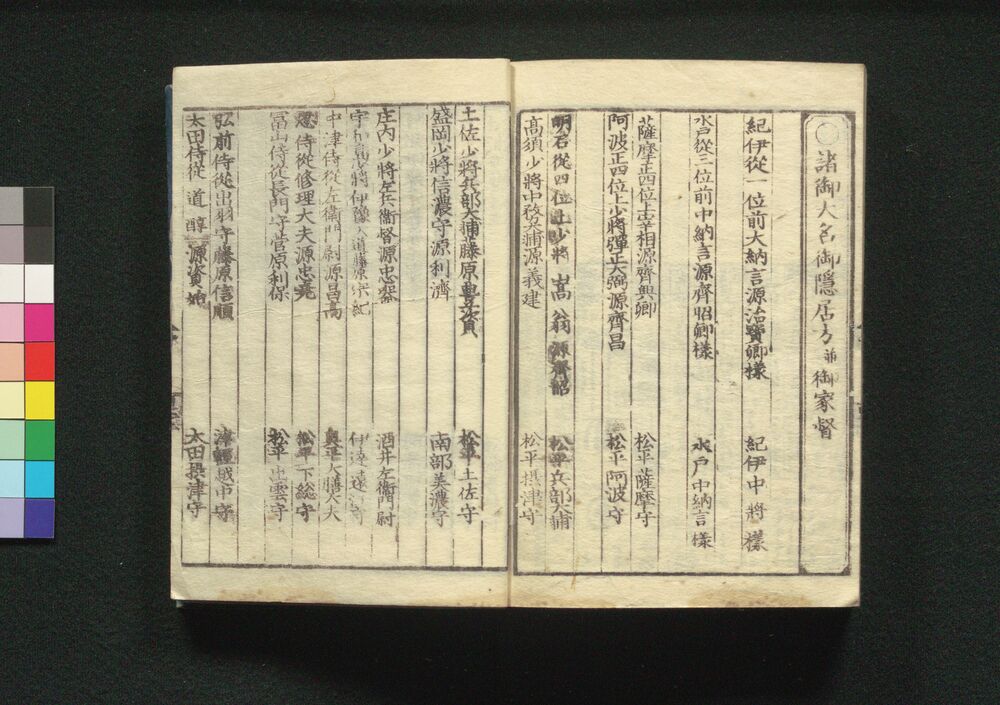 ○諸御大名御隠居方並御家督
紀伊從一位前大納言源治寶卿樣　紀伊中將樣
水戸從三位前中納言源齊昭卿樣　水戸中納言樣
薩摩正四位上宰相源齊興卿　松平薩摩守
阿波正四位上少將彈正大弼源齊昌　松平阿波守
明石從四位上少將　源齊韶　松平兵部大輔
高須少將中務大輔源義建　松平摂津守
土佐少將兵部大輔藤原豊資　松平土佐守
盛岡少將信濃守源利濟　南部美濃守
庄内少將左兵衛督源忠器　酒井左衛門尉
宇和島少將伊豫入道藤原宗紀　伊達遠江守
中津侍從左衛門尉源昌高　奥平大膳大夫
忍侍從修理大夫源忠堯　松平下総守
冨山侍從長門守菅原利保　松平出雲守
弘前侍從出羽守藤原信順　津輕越中守
太田侍從道醇源資始　太田摂津守